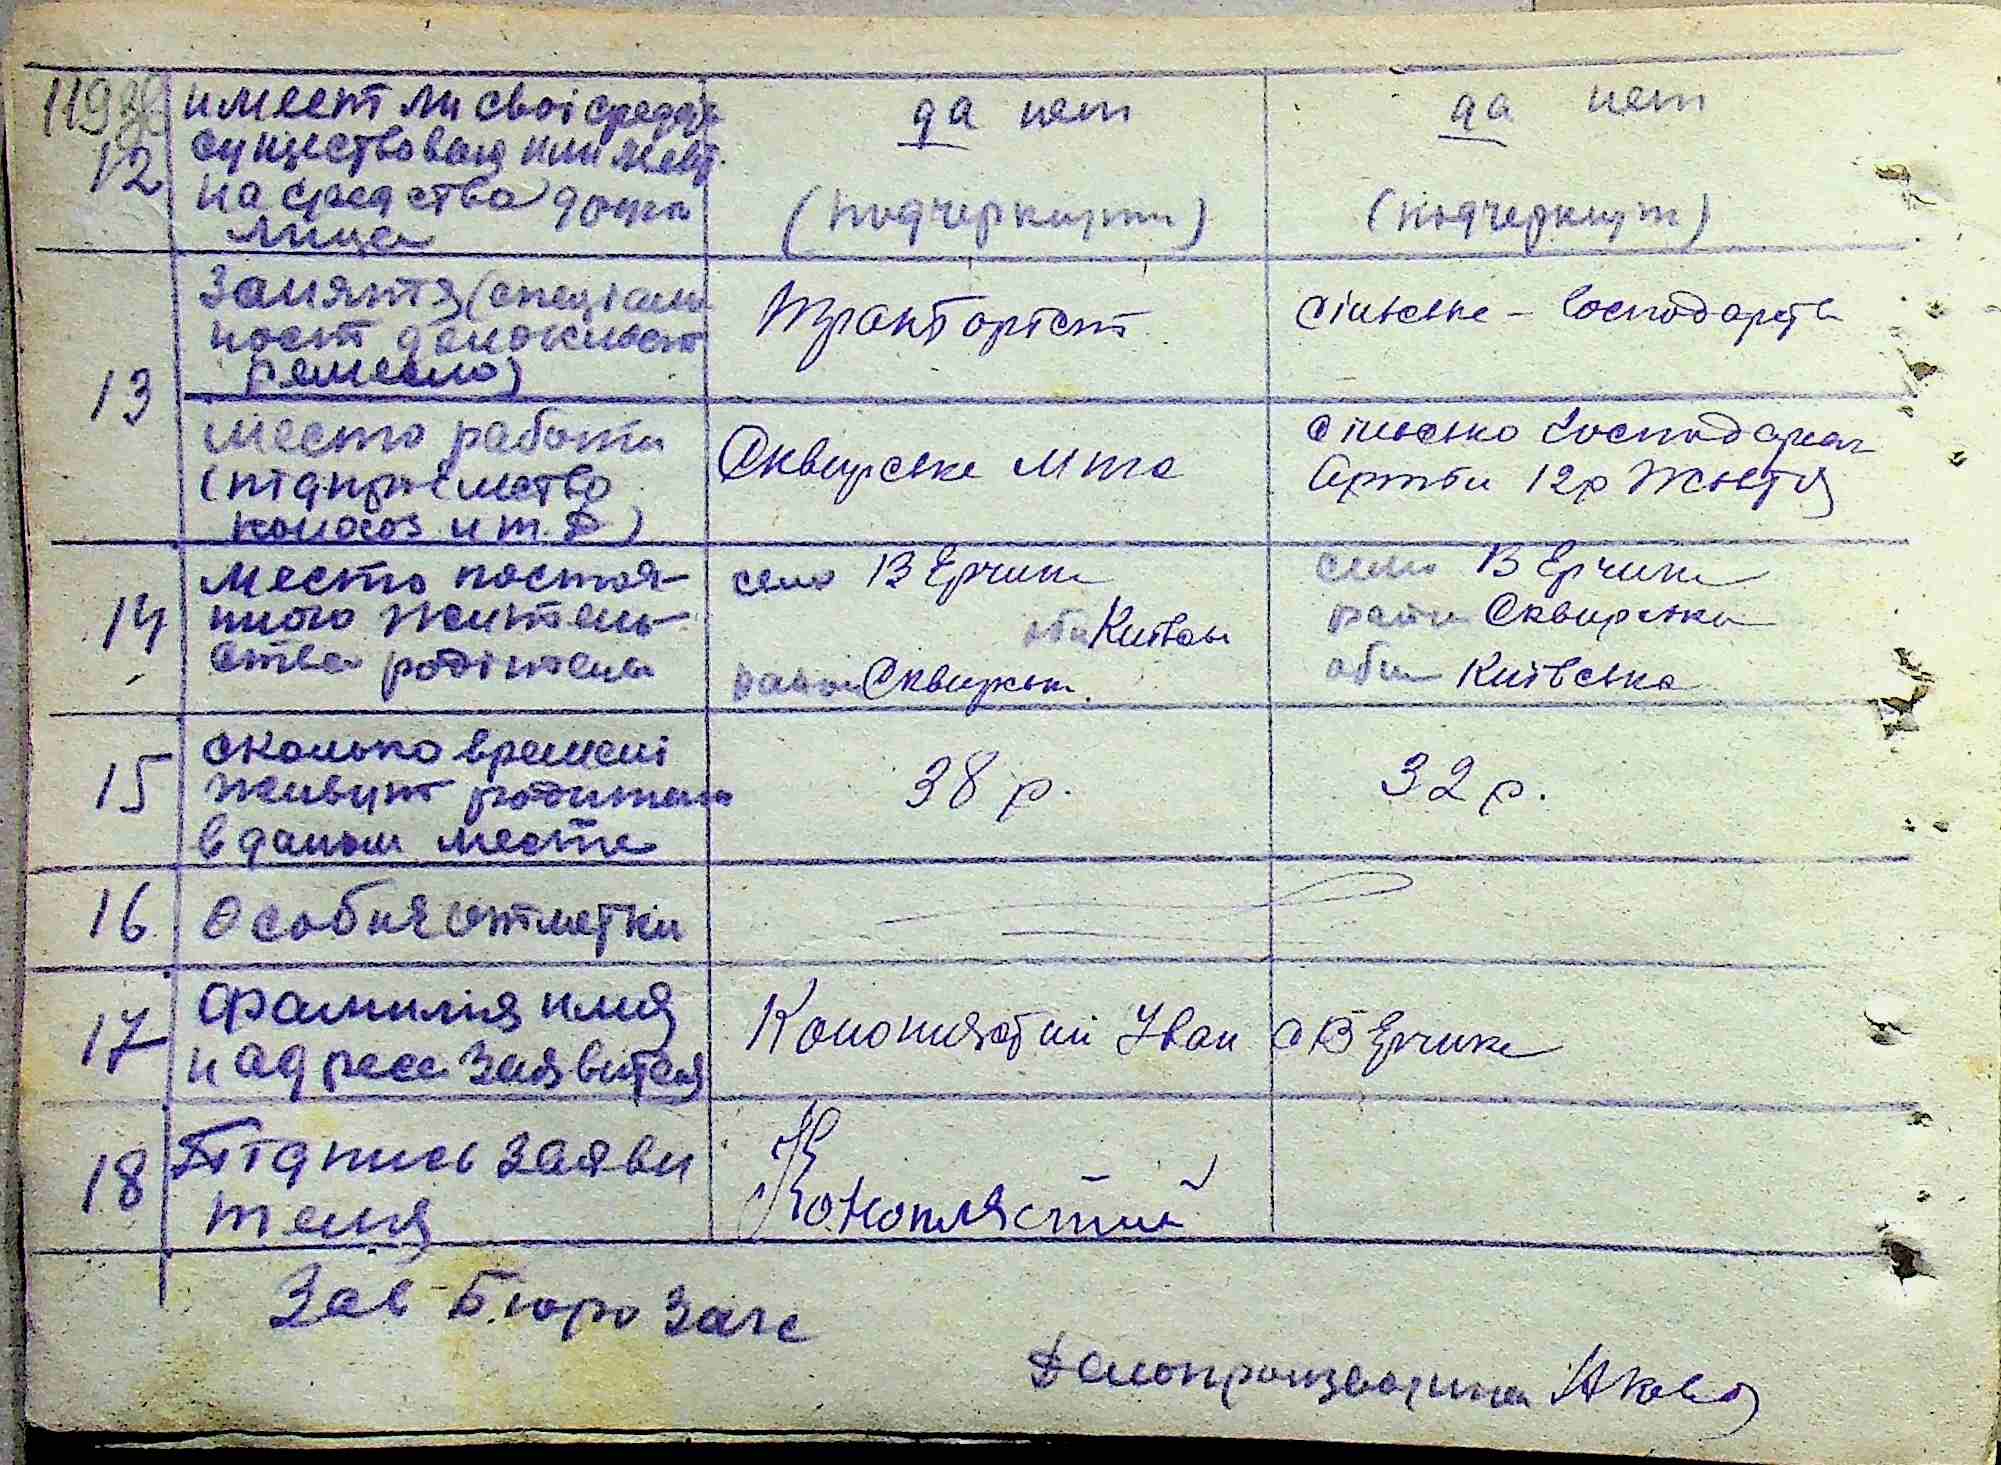 12
имеет ли своі средств
существован или живт.
на средства друга
лица
да нет
(подчеркнути)
да нет
(подчеркнут)
13
Заняття (спеціаль
ност должност
ремесло)
Тракторіст
сільське - господарств
место работи
(підприємство
колхоз и т. д)
Сквирське мтс
сільсько господарськ
Артіли 12р Жовтня
14
место постоя-
нного житель-
ства родітели
село В Ерчики
обл Київськ
район Сквирськи.
село В Ерчики
район Сквирськи
обл Київська
15
сколько времені
живут родители
в даном месте
38 р.
32 р.
16
Особия отметки
17
Фамилія имя
и адресс заявителя
Конопястий Іван с В Ерчики
18
Підпись заяви
теля
Конопястий
Зав Бюро Загс
Делопроизводитель